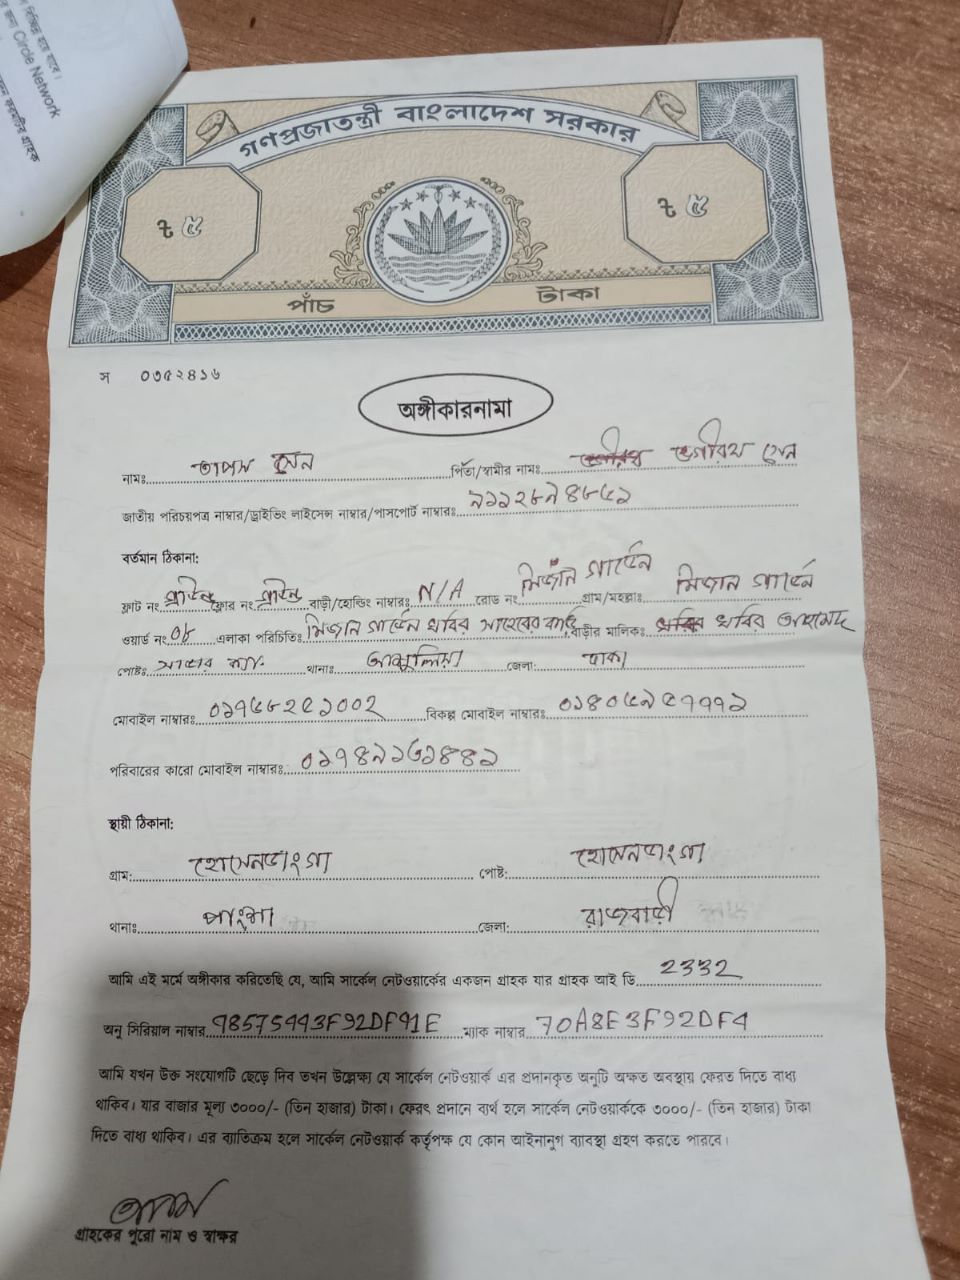 বিচ্ছিন্ন হয়ে যাবে।
জন্য Circle Network
গ্রাহক
গণপ্রজাতন্ত্রী বাংলাদেশ সরকার
৳ ৫ ৳ ৫
পাঁচ টাকা
স ০৩৫২৪১৬
অঙ্গীকারনামা
নামঃ তাপস সেন পিতা/স্বামীর নামঃ ভগীরথ সেন
জাতীয় পরিচয়পত্র নাম্বার/ড্রাইভিং লাইসেন্স নাম্বার/পাসপোর্ট নাম্বারঃ
বর্তমান ঠিকানা:
ফ্লাট নং ফ্লোর নং বাড়ী/হোল্ডিং নাম্বারঃ N/A রোড নং মিজান গার্ডেন গ্রাম/মহল্লাঃ মিজান গার্ডেন
ওয়ার্ড নং ০৮ এলাকা পরিচিতিঃ মিজান গার্ডেন খবির সাহেবের বাড়ি বাড়ীর মালিকঃ খবির আহমেদ
পোষ্টঃ সাভার ক্যা: থানাঃ আশুলিয়া জেলা: ঢাকা
মোবাইল নাম্বারঃ বিকল্প মোবাইল নাম্বারঃ
পরিবারের কারো মোবাইল নাম্বারঃ
স্থায়ী ঠিকানা:
গ্রাম: হোসেনডাংগা পোষ্ট: হোসেনডাংগা
থানাঃ পাংশা জেলা: রাজবাড়ী
আমি এই মর্মে অঙ্গীকার করিতেছি যে, আমি সার্কেল নেটওয়ার্কের একজন গ্রাহক যার গ্রাহক আই ডি 2332
অনু সিরিয়াল নাম্বার 98575443F92DF91E ম্যাক নাম্বার 70A8E3F92DF4
আমি যখন উক্ত সংযোগটি ছেড়ে দিব তখন উল্লেক্ষ্য যে সার্কেল নেটওয়ার্ক এর প্রদানকৃত অনুটি অক্ষত অবস্থায় ফেরত দিতে বাধ্য
থাকিব। যার বাজার মূল্য ৩০০০/- (তিন হাজার) টাকা। ফেরৎ প্রদানে ব্যর্থ হলে সার্কেল নেটওয়ার্ককে ৩০০০/- (তিন হাজার) টাকা
দিতে বাধ্য থাকিব। এর ব্যাতিক্রম হলে সার্কেল নেটওয়ার্ক কর্তৃপক্ষ যে কোন আইনানুগ ব্যাবস্থা গ্রহণ করতে পারবে।
গ্রাহকের পুরো নাম ও স্বাক্ষর